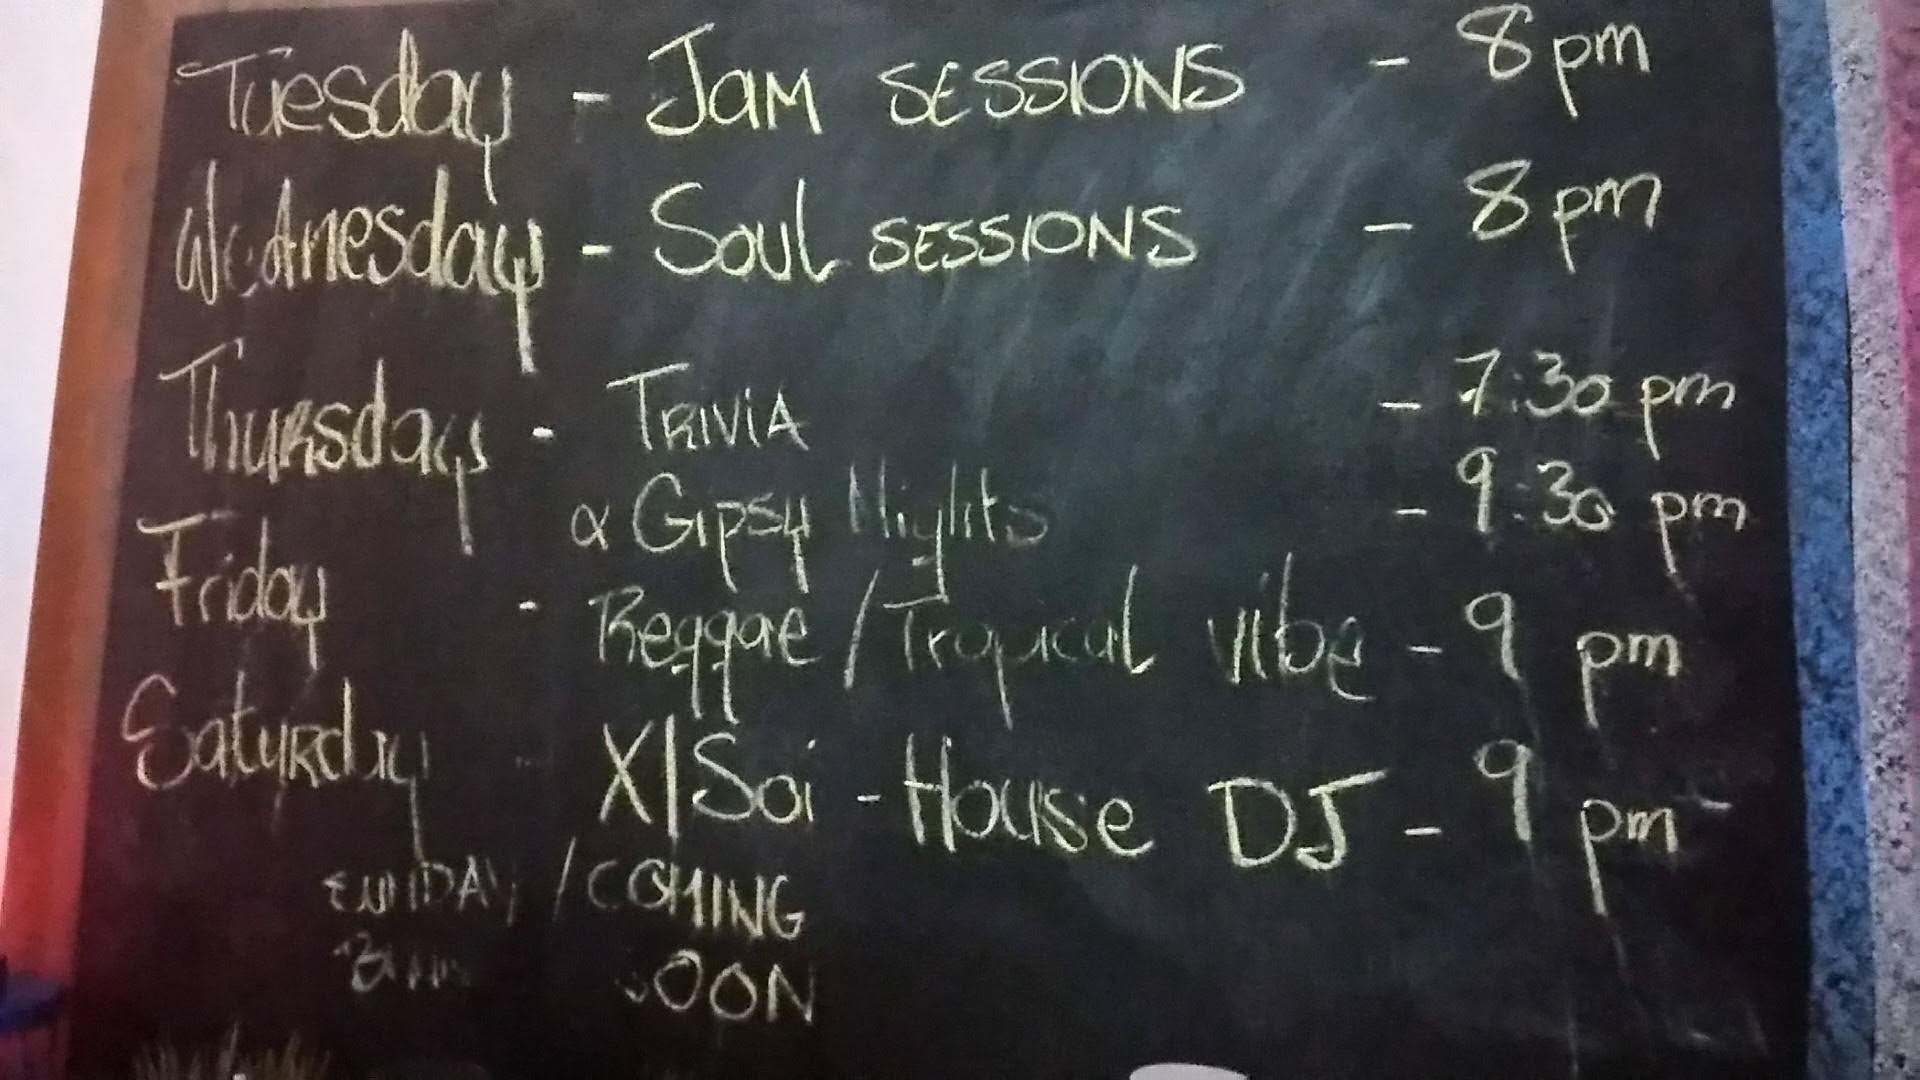 Tuesday - Jam SESSIONS - 8 pm
Wednesday - Soul SESSIONS - 8 pm
Thursday - TRIVIA - 7:30 pm
& Gipsy Nights - 9:30 pm
Friday - Reggae / Tropical vibe - 9 pm
Saturday - X|Soi - House DJ - 9 pm
SUNDAY / COMING
SOON